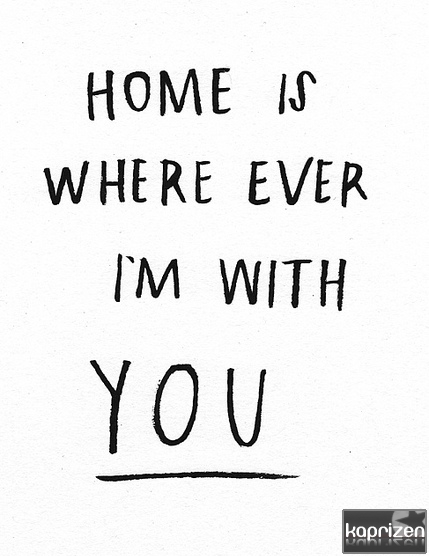 HOME IS
WHERE EVER
I'M WITH
YOU
kaprizen